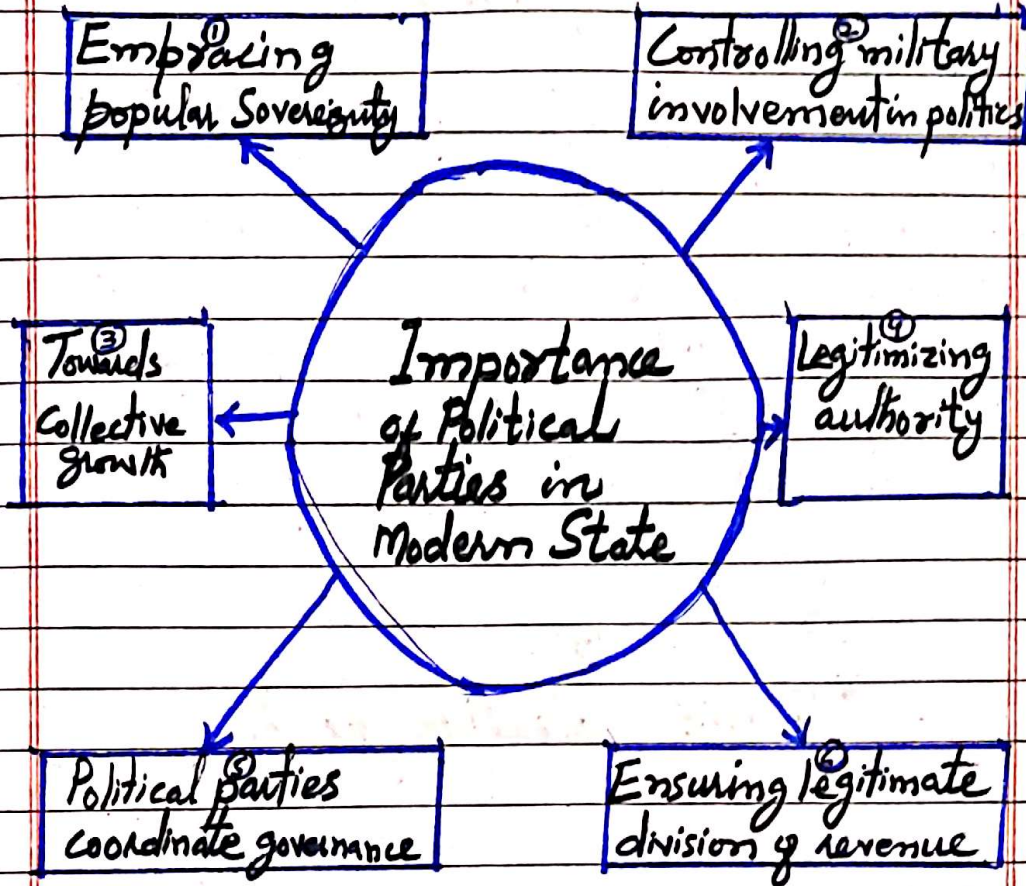 ①
Embracing
popular Sovereignty
②
Controlling military
involvement in politics
③
Towards
Collective
growth
Importance
of Political
Parties in
Modern State
④
Legitimizing
authority
⑤
Political parties
coordinate governance
⑥
Ensuring legitimate
division of revenue